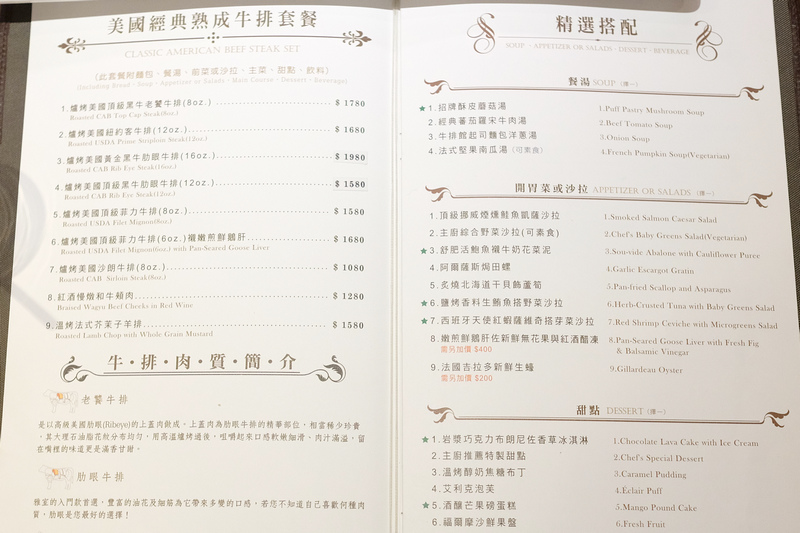 美國經典熟成牛排套餐
CLASSIC AMERICAN BEEF STEAK SET
(此套餐附麵包、餐湯、前菜或沙拉、主菜、甜點、飲料)
(Including Bread、Soup、Appetizer or Salads、Main Course、Dessert、Beverage)
1.爐烤美國頂級黑牛老饕牛排(8oz.) $ 1780
Roasted CAB Top Cap Steak(8oz.)
2.爐烤美國紐約客牛排(12oz.) $ 1680
Roasted USDA Prime Striploin Steak(12oz.)
3.爐烤美國黃金黑牛肋眼牛排(16oz.) $ 1980
Roasted CAB Rib Eye Steak(16oz.)
4.爐烤美國頂級黑牛肋眼牛排(12oz.) $ 1580
Roasted CAB Rib Eye Steak(12oz.)
5.爐烤美國頂級菲力牛排(8oz.) $ 1580
Roasted USDA Filet Mignon(8oz.)
6.爐烤美國頂級菲力牛排(6oz.)襯嫩煎鮮鵝肝 $ 1680
Roasted USDA Filet Mignon(6oz.) with Pan-Seared Goose Liver
7.爐烤美國沙朗牛排(8oz.) $ 1080
Roasted CAB Sirloin Steak(8oz.)
8.紅酒慢燉和牛頰肉 $ 1280
Braised Wagyu Beef Cheeks in Red Wine
9.溫烤法式芥茉子羊排 $ 1580
Roasted Lamb Chop with Whole Grain Mustard
牛·排·肉·質·簡·介
老饕牛排
是以高級美國肋眼(Ribeye)的上蓋肉做成。上蓋肉為肋眼牛排的精華部位,相當稀少珍貴
,其大理石油脂花紋分布均勻,用高溫爐烤過後,咀嚼起來口感軟嫩細滑、肉汁滿溢,留
在嘴裡的味道更是滿香甘甜。
肋眼牛排
雅室的入門款首選,豐富的油花及細筋為它帶來多變的口感,若您不知道自己喜歡何種肉
質,肋眼是您最好的選擇!
精選搭配
SOUP、APPETIZER OR SALADS、DESSERT、BEVERAGE
餐湯 SOUP (擇一)
★1.招牌酥皮蘑菇湯 1.Puff Pastry Mushroom Soup
2.經典蕃茄羅宋牛肉湯 2.Beef Tomato Soup
3.牛排館起司麵包洋蔥湯 3.Onion Soup
4.法式堅果南瓜湯 (可素食) 4.French Pumpkin Soup(Vegetarian)
開胃菜或沙拉 APPETIZER OR SALADS (擇一)
1.頂級挪威煙燻鮭魚凱薩沙拉 1.Smoked Salmon Caesar Salad
2.主廚綜合野菜沙拉(可素食) 2.Chef's Baby Greens Salad(Vegetarian)
★3.舒肥活鮑魚襯牛奶花菜泥 3.Sou-vide Abalone with Cauliflower Puree
4.阿爾薩斯焗田螺 4.Garlic Escargot Gratin
5.炙燒北海道干貝飾蘆筍 5.Pan-fried Scallop and Asparagus
★6.鹽烤香料生鮪魚搭野菜沙拉 6.Herb-Crusted Tuna with Baby Greens Salad
★7.西班牙天使紅蝦薩維奇搭芽菜沙拉 7.Red Shrimp Ceviche with Microgreens Salad
8.嫩煎鮮鵝肝佐新鮮無花果與紅酒醋凍 8.Pan-Seared Goose Liver with Fresh Fig
需另加價 $400 & Balsamic Vinegar
9.法國吉拉多新鮮生蠔 9.Gillardeau Oyster
需另加價 $200
甜點 DESSERT (擇一)
★1.岩漿巧克力布朗尼佐香草冰淇淋 1.Chocolate Lava Cake with Ice Cream
2.主廚推薦特製甜點 2.Chef's Special Dessert
3.溫烤醇奶焦糖布丁 3.Caramel Pudding
4.艾利克泡芙 4.Eclair Puff
★5.酒釀芒果磅蛋糕 5.Mango Pound Cake
6.福爾摩沙鮮果盤 6.Fresh Fruit